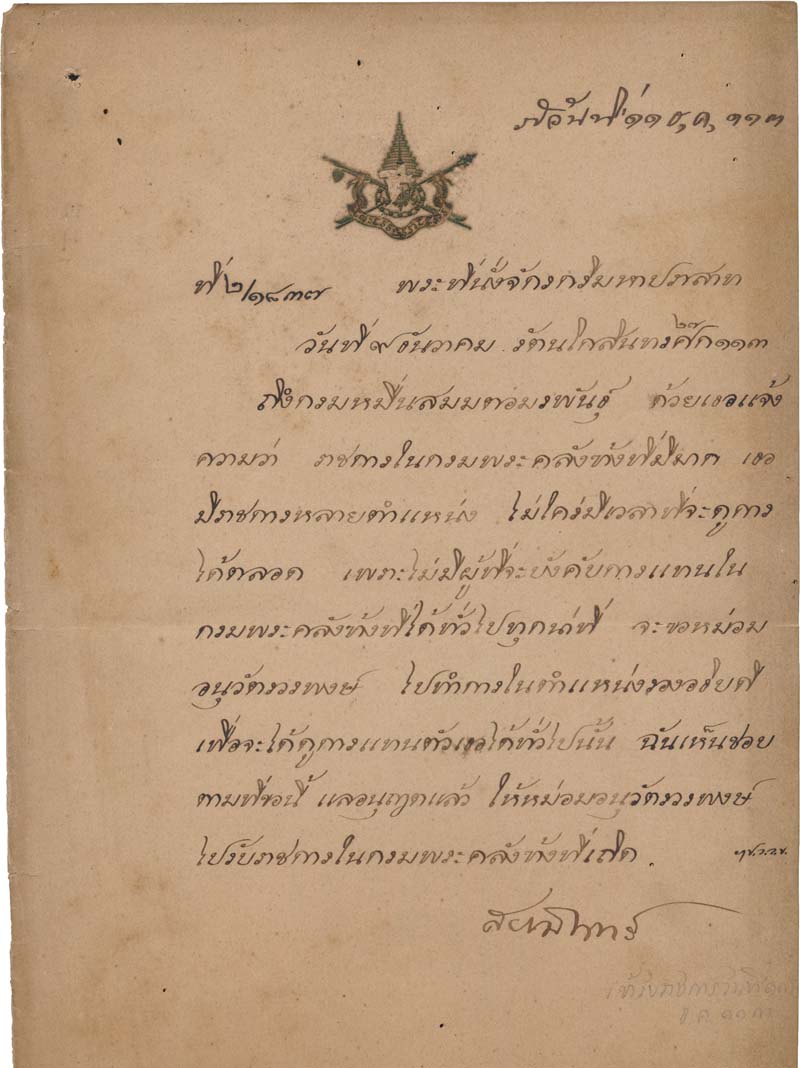 วันที่ ๑๑ ธ,ค, ๑๑๓
ที่ ๒/๑๘๓๗ พระที่นั่งจักรกรีมหาปราสาท
วันที่ ๙ ธันวาคม รัตนโกสินทรศก ๑๑๓
ถึงกรมหมื่นสมมตอมรพันธุ์ ด้วยเธอแจ้ง
ความว่า ราชการในกรมพระคลังข้างที่มีมาก เธอ
มีราชการหลายตำแหน่ง ไม่ใคร่มีเวลาที่จะดูการ
ได้ตลอด เพราะไม่มีผู้ที่จะบังคับการแทนใน
กรมพระคลังข้างที่ได้ทั่วไปทุกน่าที่ จะขอหม่อม
อนุวัตรวรพงษ์ ไปทำการในตำแหน่งรองอธิบดี
เพื่อจะได้ดูการแทนตัวเธอได้ทั่วไปนั้น ฉันเห็นชอบ
ตามที่ขอนี้ แลอนุญาตแล้ว ให้หม่อมอนุวัตรวรพงษ์
ไปรับราชการในกรมพระคลังข้างที่เถิด
สยามินทร์
ธ ค ๑๑๓